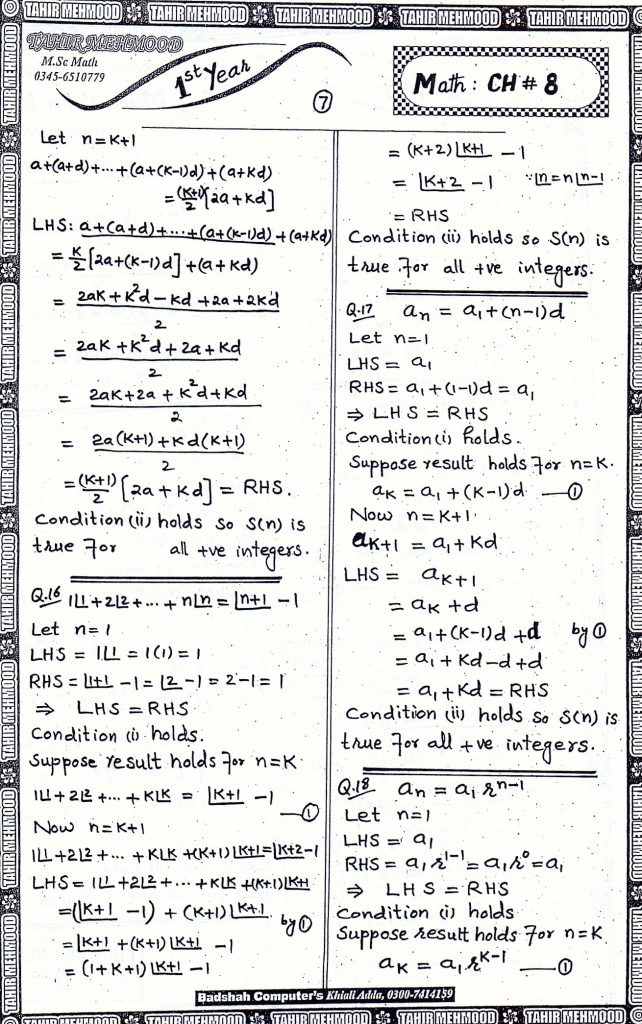 TAHIR MEHMOOD TAHIR MEHMOOD TAHIR MEHMOOD TAHIR MEHMOOD TAHIR MEHMOOD
TAHIR MEHMOOD
M.Sc Math
0345-6510779
1st Year
7
Math : CH # 8
Let n=K+1
a+(a+d)+...+(a+(K-1)d)+(a+Kd)
=(K+1)/2[2a+Kd]
LHS: a+(a+d)+...+(a+(K-1)d)+(a+Kd)
= K/2[2a+(K-1)d]+(a+Kd)
= 2aK+K²d-Kd+2a+2Kd / 2
= 2aK+K²d+2a+Kd / 2
= 2aK+2a+K²d+Kd / 2
= 2a(K+1)+Kd(K+1) / 2
=(K+1)/2[2a+Kd] = RHS.
Condition (ii) holds so S(n) is
true for all +ve integers.
Q.16 1⌊1+2⌊2+...+n⌊n = ⌊n+1 -1
Let n=1
LHS = 1⌊1 = 1(1) = 1
RHS = ⌊1+1 -1 = ⌊2 -1 = 2-1 = 1
⇒ LHS = RHS
Condition (i) holds.
Suppose result holds for n=K
1⌊1+2⌊2+...+K⌊K = ⌊K+1 -1 —①
Now n=K+1
1⌊1+2⌊2+...+K⌊K+(K+1)⌊K+1=⌊K+2-1
LHS = 1⌊1+2⌊2+...+K⌊K+(K+1)⌊K+1
=(⌊K+1 -1) + (K+1)⌊K+1 by①
=⌊K+1 +(K+1)⌊K+1 -1
= (1+K+1)⌊K+1 -1
= (K+2)⌊K+1 -1
= ⌊K+2 -1 ∵⌊n=n⌊n-1
= RHS
Condition (ii) holds so S(n) is
true for all +ve integers.
Q.17 aₙ = a₁+(n-1)d
Let n=1
LHS = a₁
RHS = a₁+(1-1)d = a₁
⇒ LHS = RHS
Condition (i) holds.
Suppose result holds for n=K.
aₖ = a₁+(K-1)d —①
Now n=K+1
aₖ₊₁ = a₁+Kd
LHS = aₖ₊₁
= aₖ+d
= a₁+(K-1)d+d by①
= a₁+Kd-d+d
= a₁+Kd = RHS
Condition (ii) holds so S(n) is
true for all +ve integers.
Q.18 aₙ = a₁rⁿ⁻¹
Let n=1
LHS = a₁
RHS = a₁r¹⁻¹ = a₁r⁰ = a₁
⇒ LHS = RHS
Condition (i) holds
Suppose result holds for n=K
aₖ = a₁rᴷ⁻¹ —①
Badshah Computer's Khiali Adda, 0300-7414159
TAHIR MEHMOOD TAHIR MEHMOOD TAHIR MEHMOOD TAHIR MEHMOOD TAHIR MEHMOOD